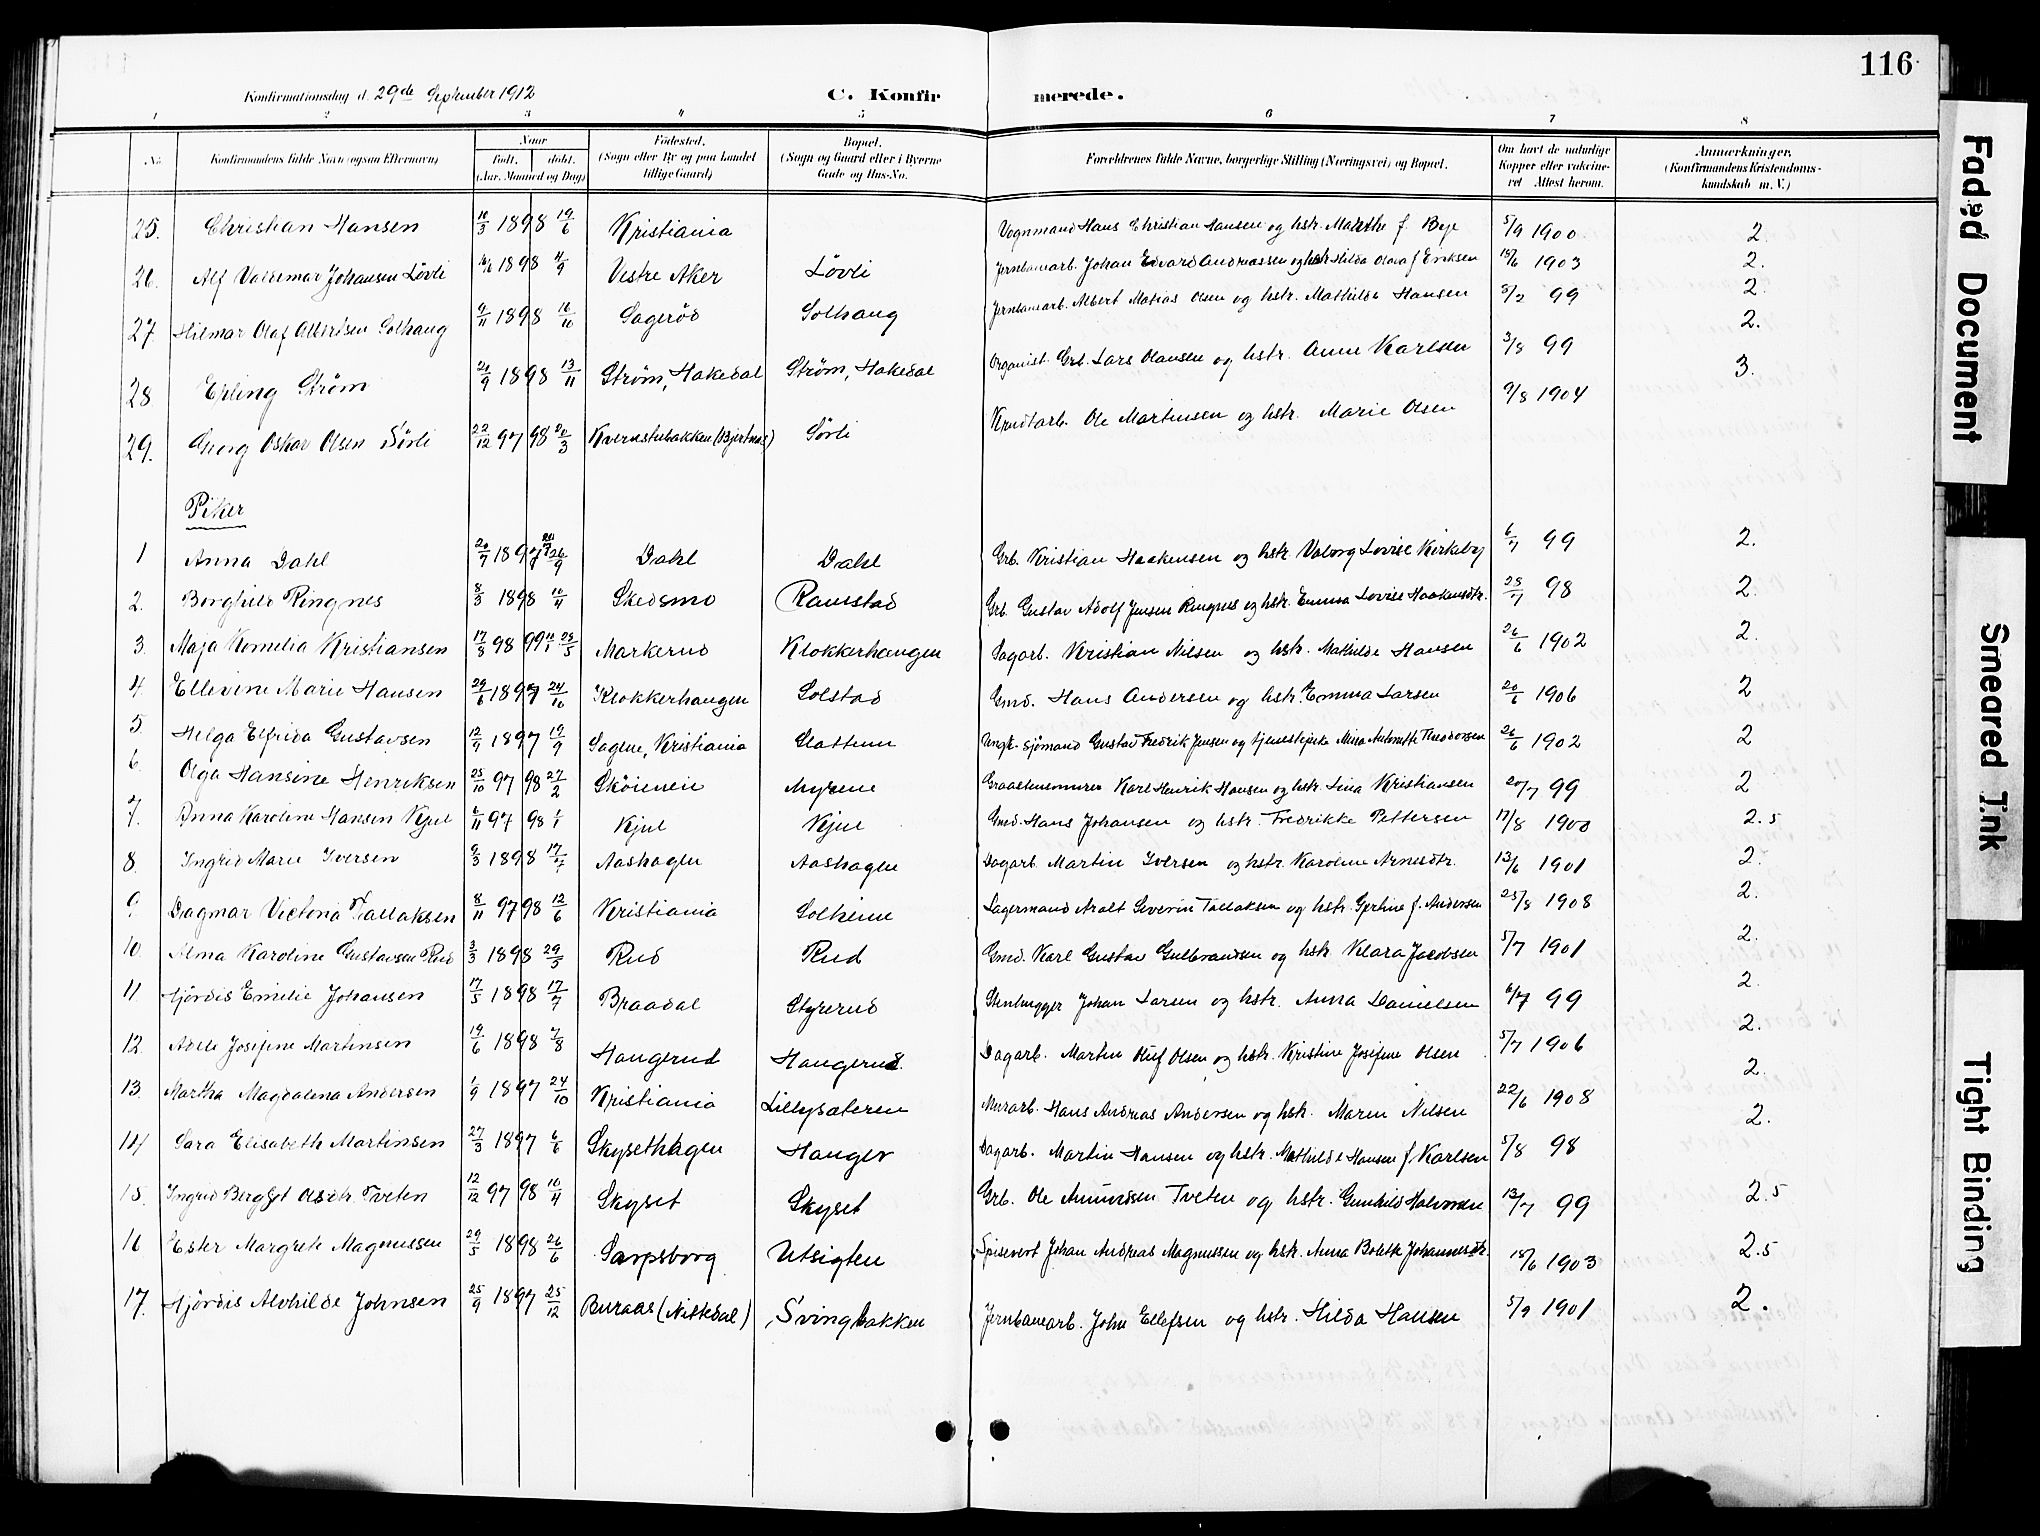 116
Konfirmationsdag d. 29de September 1912
C. Konfirmerede.
1 2 3 4 5 6 7 8
No. Konfirmandens fulde Navn (ogsaa Efternavn) Naar født. døbt. (Aar, Maaned og Dag) Fødested. (Sogn eller By og paa Landet tillige Gaard) Bopæl. (Sogn og Gaard eller i Byerne Gade og Hus-No. Forældrenes fulde Navne, borgerlige Stilling (Næringsvei) og Bopæl. Om havt de naturlige Kopper eller vakcineret Attest herom. Anmærkninger. (Konfirmandens Kristendomskundskab m. V.)
25. Christian Hansen 10/3 1898 19/6 Kristiania Vognmand Hans Christian Hansen og hstr. Marthe f. Bye 5/9 1900 2.
26. Alf Valdemar Johansen Lövli 1898 11/9 Vestre Aker Lövli Jernbanearb. Johan Edvard Andreassen og hstr. Hilda Olava f Eriksen 19/6 1903 2.
27. Hilmar Olaf Albertsen Solhaug 9/11 1898 16/10 Sageröd Solhaug Jernbanearb. Albert Matias Olsen og hstr. Mathilde Hansen 3/2 99 2.
28 Erling Strøm 20/9 1898 13/11 Strøm, Hakedal Strøm, Hakedal Organist. Grb. Lars Olausen og hstr. Anne Karlsen 3/8 99 2.
29. Georg Oskar Olsen Sörli 22/12 97 98 20/3 Kvernstubakken (Bjertnes) Sörli Krudtarb. Ole Martinsen og hstr. Marie Olsen 9/8 1904 3.
Piker
1 Anna Dahl 20/7 1897 26/9 Dahl Dahl Grb. Kristian Haakensen og hstr. Valborg Lovise Kirkeby 6/7 99 2.
2. Borghild Ringnes 8/3 1898 10/4 Skedsmo Ramstad Grb. Gustav Adolf Jensen Ringnes og hstr. Emma Lovise Haakensdtr. 28/7 98 2.
3. Maja Kornelia Kristiansen 17/8 98 99 28/5 Markerud Klokkerhaugen Dagarb. Kristian Nilsen og hstr. Mathilde Hansen 26/6 1902 2.
4. Ellevine Marie Hansen 29/6 1897 24/10 Klokkerhaugen Solstad Gmd. Hans Andersen og hstr. Emma Larsen 20/6 1906 2
5. Helga Elfrida Gustavsen 12/9 1897 19/9 Sagene, Kristiania Slattum Ungk. sjömand Gustav Fredrik Jensen og tjenestepike Mina Antonette Theodorsen 26/6 1902 2
6. Olga Hansine Henriksen 25/10 97 98 27/2 Sköieneie Myrene Graastensmurer Karl Henrik Hansen og hstr. Lina Kristiansen 20/7 99 2
7. Anna Karoline Hansen Kjul 6/11 97 98 1/1 Kjul Kjul Gmd. Hans Johansen og hstr. Fredrikke Pettersen 17/8 1900 2.5
8. Ingrid Marie Iversen 9/3 1898 17/7 Aashagen Aashagen Dagarb Martin Iversen og hstr. Karoline Arnesdtr. 13/6 1901 2.
9. Dagmar Victoria Tallaksen 8/11 97 98 12/6 Kristiania Solheim Lagermand Aralt Severin Tallaksen og hstr. Gjertine f. Andersen 25/8 1908 2.
10. Alma Karoline Gustavsen Rud 3/3 1898 29/3 Rud Rud Gmd. Karl Gustav Gulbrandsen og hstr. Klara Jacobsen 5/7 1901 2.
11 Hjördis Emilie Johansen 17/5 1898 17/7 Braadal Styrerud Stenhugger Johan Larsen og hstr. Anna Danielsen 6/7 99 2.
12. Adele Josefine Martinsen 19/6 1898 7/8 Haugerud Haugerud. Dagarb. Martin Oluf Olsen og hstr. Kristine Josefine Olsen 5/7 1906 2.
13. Martha Magdalena Andersen 1/9 1897 24/10 Kristiania Lillysäteren Murarb. Hans Andreas Andersen og hstr. Maren Nilsen 22/6 1908 2.
14 Sara Elisabeth Martinsen 27/3 1897 6/6 Skysethagen Hauger Dagarb. Martin Hansen og hstr. Mathilde Hansen f. Karlsen 5/8 98 2.
15. Ingrid Bergljot Olsdtr. Tveten 12/12 97 98 10/4 Skyset Skyset Grb. Ole Amundsen Tveten og hstr. Gunhild Halvorsen 13/7 99 2.5
16 Ester Margrete Magnussen 29/5 1898 26/6 Sarpsborg Utsigten Spisevert Johan Andreas Magnussen og hstr. Anna Bolette Johannesdtr. 18/6 1903 2.5
17. Hjördis Alvhilde Johnsen 25/9 1897 25/12 Buraas (Nittedal) Svingbakken Jernbanearb. John Ellefsen og hstr. Hilda Hansen 5/9 1901 2.
Faded Document
Smeared Ink
Tight Binding